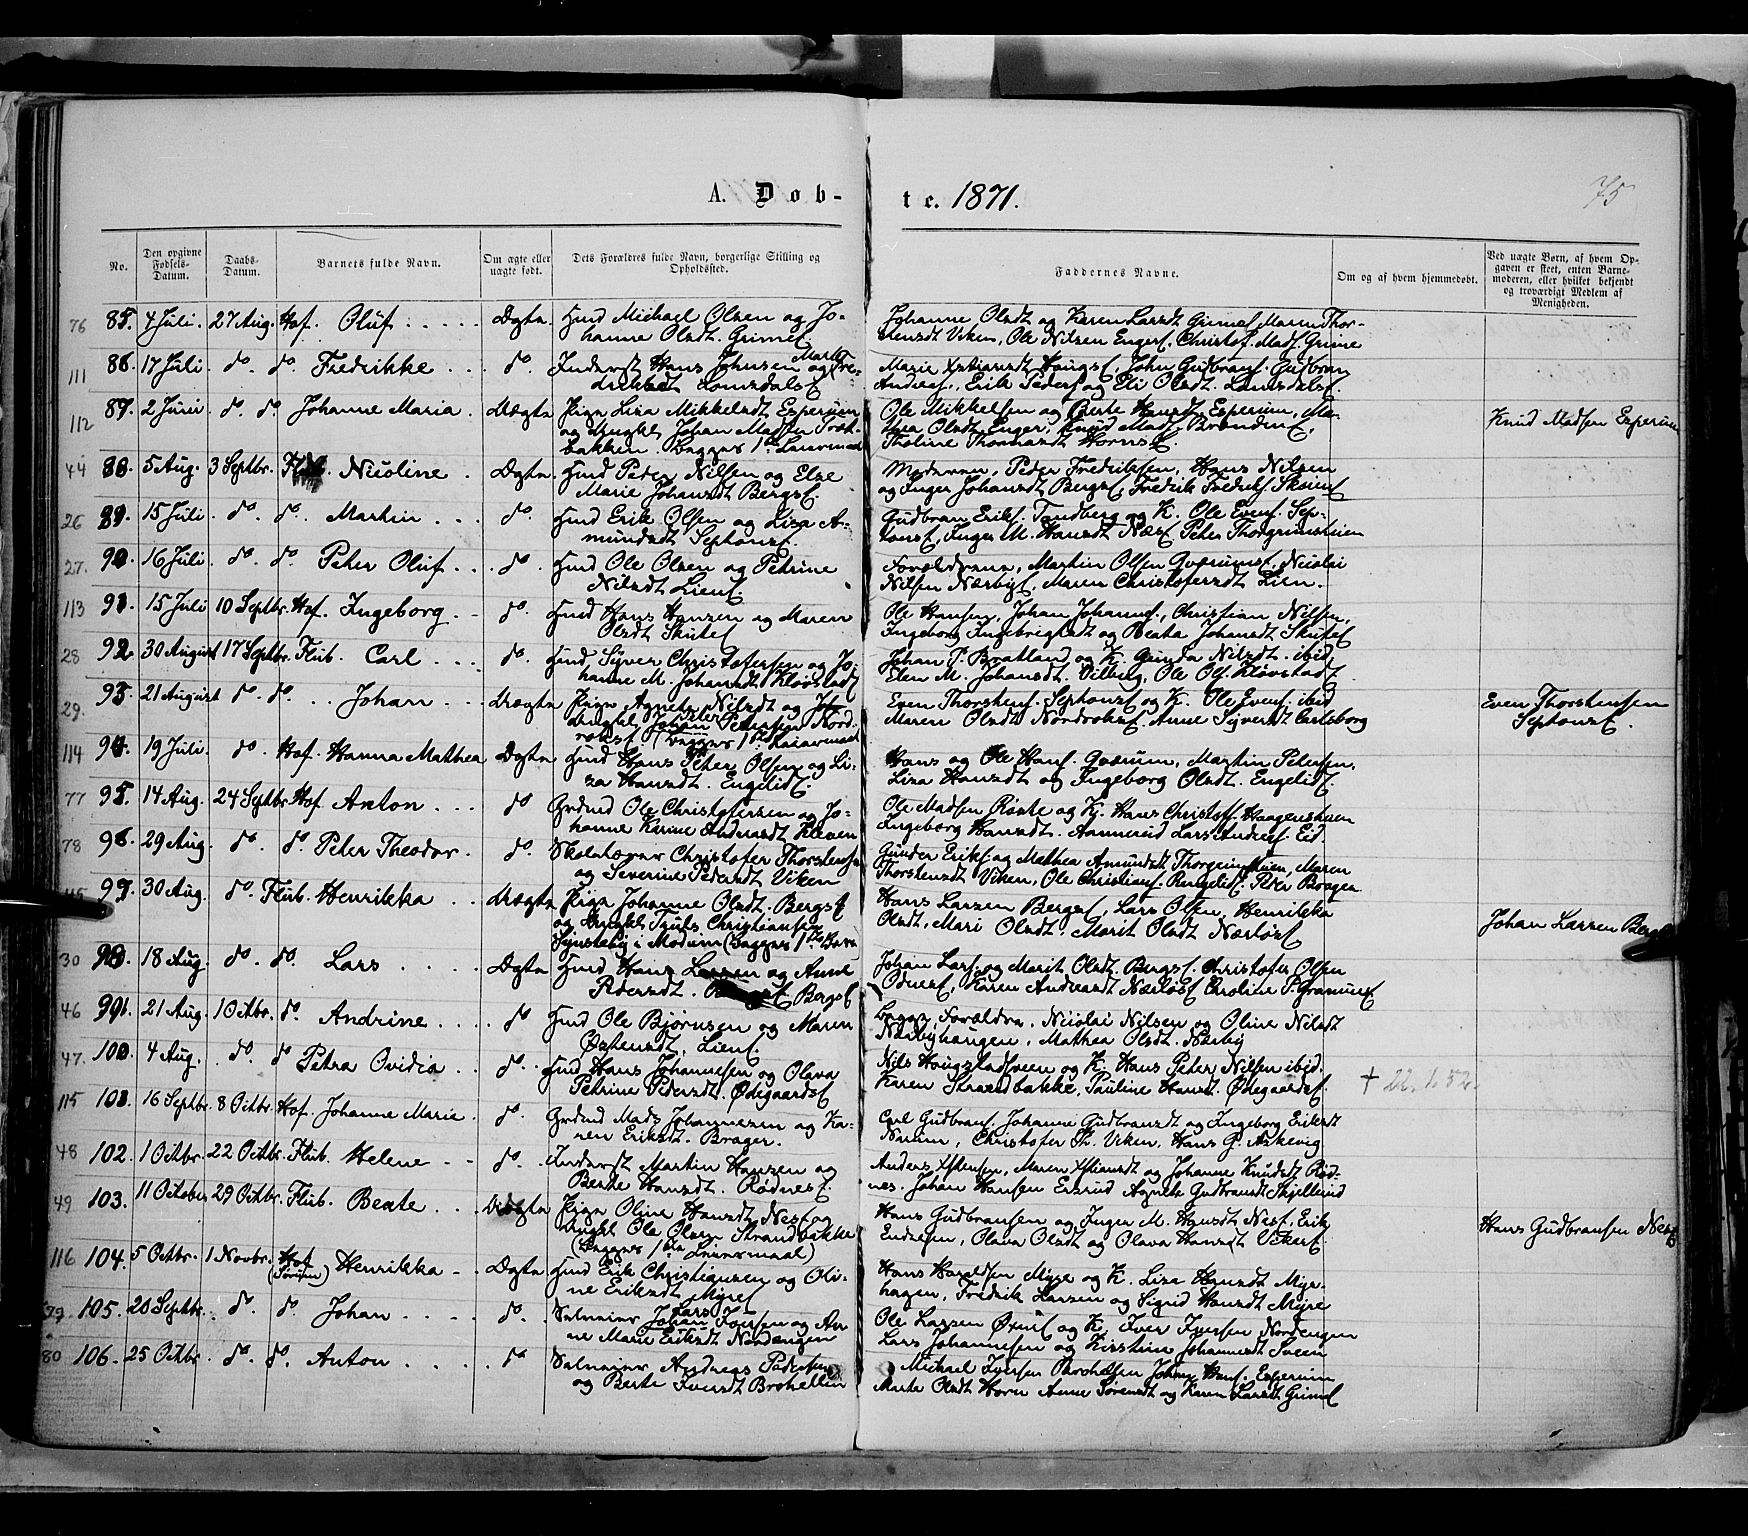 A. Døb-
te. 1871.
75
No.
Den opgivne Fødsels-Datum.
Daabs-Datum.
Barnets fulde Navn.
Om ægte eller uægte født.
Dets Forældres fulde Navn, borgerlige Stilling og Opholdssted.
Faddernes Navne.
Om og af hvem hjemmedøbt.
Ved uægte Børn, af hvem Opgaven er skeet, enten Barnemoderen, eller hvilket bekjendt og troværdigt Medlem af Menigheden.
76 85. 4 Juli. 27 Aug. Hof. Oluf Ægte Hmd Michael Olsen og Jo-
hanne Olsdt. Grimsf.
Johanne Olsdt og Karen Larsdt Grimsf. Maren Thor-
stensdt Viken, Ole Nilsen Engerf. Christof. Mads. Grime
111 86. 17 Juli do. do. Fredrikke do. Inderst Hans Johnsen og Marthe Fre-
drikksdt Lomsdalsf.
Marie Xstiansdt Haugsf. John Gudbransf. Gudbran
Andersf. Erik Pedersf og Eli Olsdt. Lomsdalsf.
112 87. 2 Juni do. do. Johanne Maria. Uægte Pige Lisa Mikkelsdt Esperum
og Ungkl Johan Madsen Træk-
bakken. Begges 1ste Leiermaal
Ole Mikkelsen og Berte Hansdt Esperum, Ma-
thea Olsdt Enger, Knud Mads. Brænden,
Tholine Thomasdt Hornsf.
Knud Madsen Esperum
44 88. 5 Aug. 3 Septbr. Flub. Nicoline Ægte Hmd Peder Nilsen og Else
Marie Johansdt Bergsf.
Moderen, Peder Fredriksen, Hans Nilsen
og Inger Johansdt Bergsf, Fredrik Fredriksf Skoiensf
26 89. 15 Juli do. do. Martin do. Hmd Erik Olsen og Lisa A-
mundsdt Septonsf.
Gudbran Eriks. Tandberg og K. Ole Evens. Sep-
tonsf, Inger M. Hansdt Næsf. Peter Thorgrimstuen
27. 90. 16 Juli do. do. Peter Oluf do. Hmd Ole Olsen og Petrine
Nilsdt Liensf.
Forældrene, Martin Olsen Gværumsf. Nicolai
Nilsen Nærbyf, Maren Christofersdt Lien.
113 91. 15 Juli 10 Septbr. Hof. Ingeborg do. Hmd Hans Hansen og Maren
Olsdt Skutesf
Ole Hansen, Johan Johannesf, Christian Nilsen,
Ingeborg Ingebrigtsdt og Beata Johansdt Skutesf
28 92. 30 August 17 Septbr. Flub. Carl do. Hmd Syver Christofersen og Jo-
hanne M. Johansdt Kløvstadf
Johan P. Bratland og K. Gunda Nilsdt. ibid
Elen M. Johansdt. Vilberg, Ole Ols. Kløvstadf.
29. 93. 21 August do. do. Johan Uægte Pige Agnete Nilsdt og
Ungkl Johan Petersen Nord-
roksf. (Begges 1ste Leiermaal
Even Thorstensf. Septonsf og K. Ole Evens. ibid
Maren Olsdt Nordroksf. Anne Syversdt Carlsborg
Even Thorstensen
Septonsf.
114 94. 19 Juli. do. Hof. Hanna Mathea Ægte Hmd Hans Peter Olsen og Li-
sa Hansdt. Engelidf.
Hans og Ole Hansf. Gværum, Martin Petersen,
Lisa Hansdt og Ingeborg Olsdt. Engelidf.
77 95. 14 Aug. 24 Septbr Hof. Anton do Grdmd Ole Christofersen og Jo-
hanne Karine Andersdt Kleven
Ole Madsen Røste og K. Hans Christoff. Haagenstuen
Ingeborg Hansdt. Lars Andersf. Eid.
78 96. 29 Aug. do. do Peter Theodor. do. Skolelærer Christofer Thorstensen
og Severine Pedersdt Viken
Gunder Eriks. og Mathea Amundsdt Thorgrimstuen, Maren
Thorstensdt Viken, Ole Christiansf. Rungelidf. Peder Brager
45 97. 30 Aug. do. Flub. Henrikka Uægte Pige Johanne Olsdt. Bergsf
og Ungkl Truls Christiansen
i Modum (Begges 1ste Barn)
Hans Larsen Bergsf. Lars Olsen, Henrikka
Olsdt, Mari Olsdt. Marit Olsdt Nærløsf
Johan Larsen Bergsf
30 98. 18 Aug. do. do. Lars Ægte Hmd Hans Larsen og Anne
Pedersdt. Bergsf
Johan Lars. og Marit Olsdt. Bergsf. Christofer Olsen
Odnesf. Karen Andersdt Nærløsf Caroline P. Granumsf
46 99. 21 Aug. 1 Octbr. do. Andrine do Hmd Ole Bjørnsen og Maren
Østensdt, Liensf.
Begge Forældre, Nicolai Nilsen og Oline Nilsdt
Nærbyhaugen, Mathea Olsdt. Nærby
47. 100. 4 Aug. do. do Petra Ovidia do. Hmd Hans Johannesen og Olava
Petrine Pedersdt. Ødegaardsf
Nils Haugstadsveen og K. Hans Peter Nilsen ibid.
Karen Strandbakke, Pauline Hansdt. Ødegaardsf.
† 22.1.52.
115 101. 16 Septbr. 8 Octbr. Hof. Johanne Marie do. Grdmd Mads Johannesen og Ka-
ren Eriksdt. Brager.
Carl Gudbransf. Johanne Gudbransdt og Ingeborg Eriksdt
Næsen, Christofer Th. Viken, Hans G. Askevig
48 102. 1 Octbr. 22 Octbr. Flub. Helene do. Inderst Martin Hansen og
Berte Hansdt. Rødnesf.
Anders Xstensen, Maren Xstiansdt og Johanne Knudsdt Rød-
nes. Johan Hansen Evsrud Agnete Gudbransdt Skjellerud
49 103. 11 October 29 Octbr. Flub. Beate Uægte Pige Oline Hansdt Nesf og
Ungkl Ole Olsen Strandbakke
(Begges 1ste Leiermaal)
Hans Gudbransen og Inger M. Hansdt Nesf. Erik
Endresen, Olava Olsdt og Olava Hansdt Vikersf.
Hans Gudbransen Nesf
116 104. 5 Octbr. 1 Novbr. Hof (Sørum) Henrikka Ægte Hmd Erik Christiansen og Oli-
ne Eriksdt Myresf
Hans Haraldsen Myre og K. Lisa Hansdt Myr-
hagen, Fredrik Larsen og Sigrid Hansdt Myre
79. 105. 20 Septbr. do. do. Johan do. Selveier Johan Lars Iversen og An-
ne Marie Eriksdt Nordengen
Ole Larsen Ørenf og K. Iver Iversen Nordengen
Lars Johannesen og Kirstine Johannesdt Sveen
80 106. 25 Octbr. do. do. Anton do Selveier Andreas Pedersen
og Berte Iversdt Brohellen
Michael Iversen Brohelsen, Johan Hansf. Esperum
Marte Olsdt Horn Anne Sørensdt og Karen Larsdt Grimsf